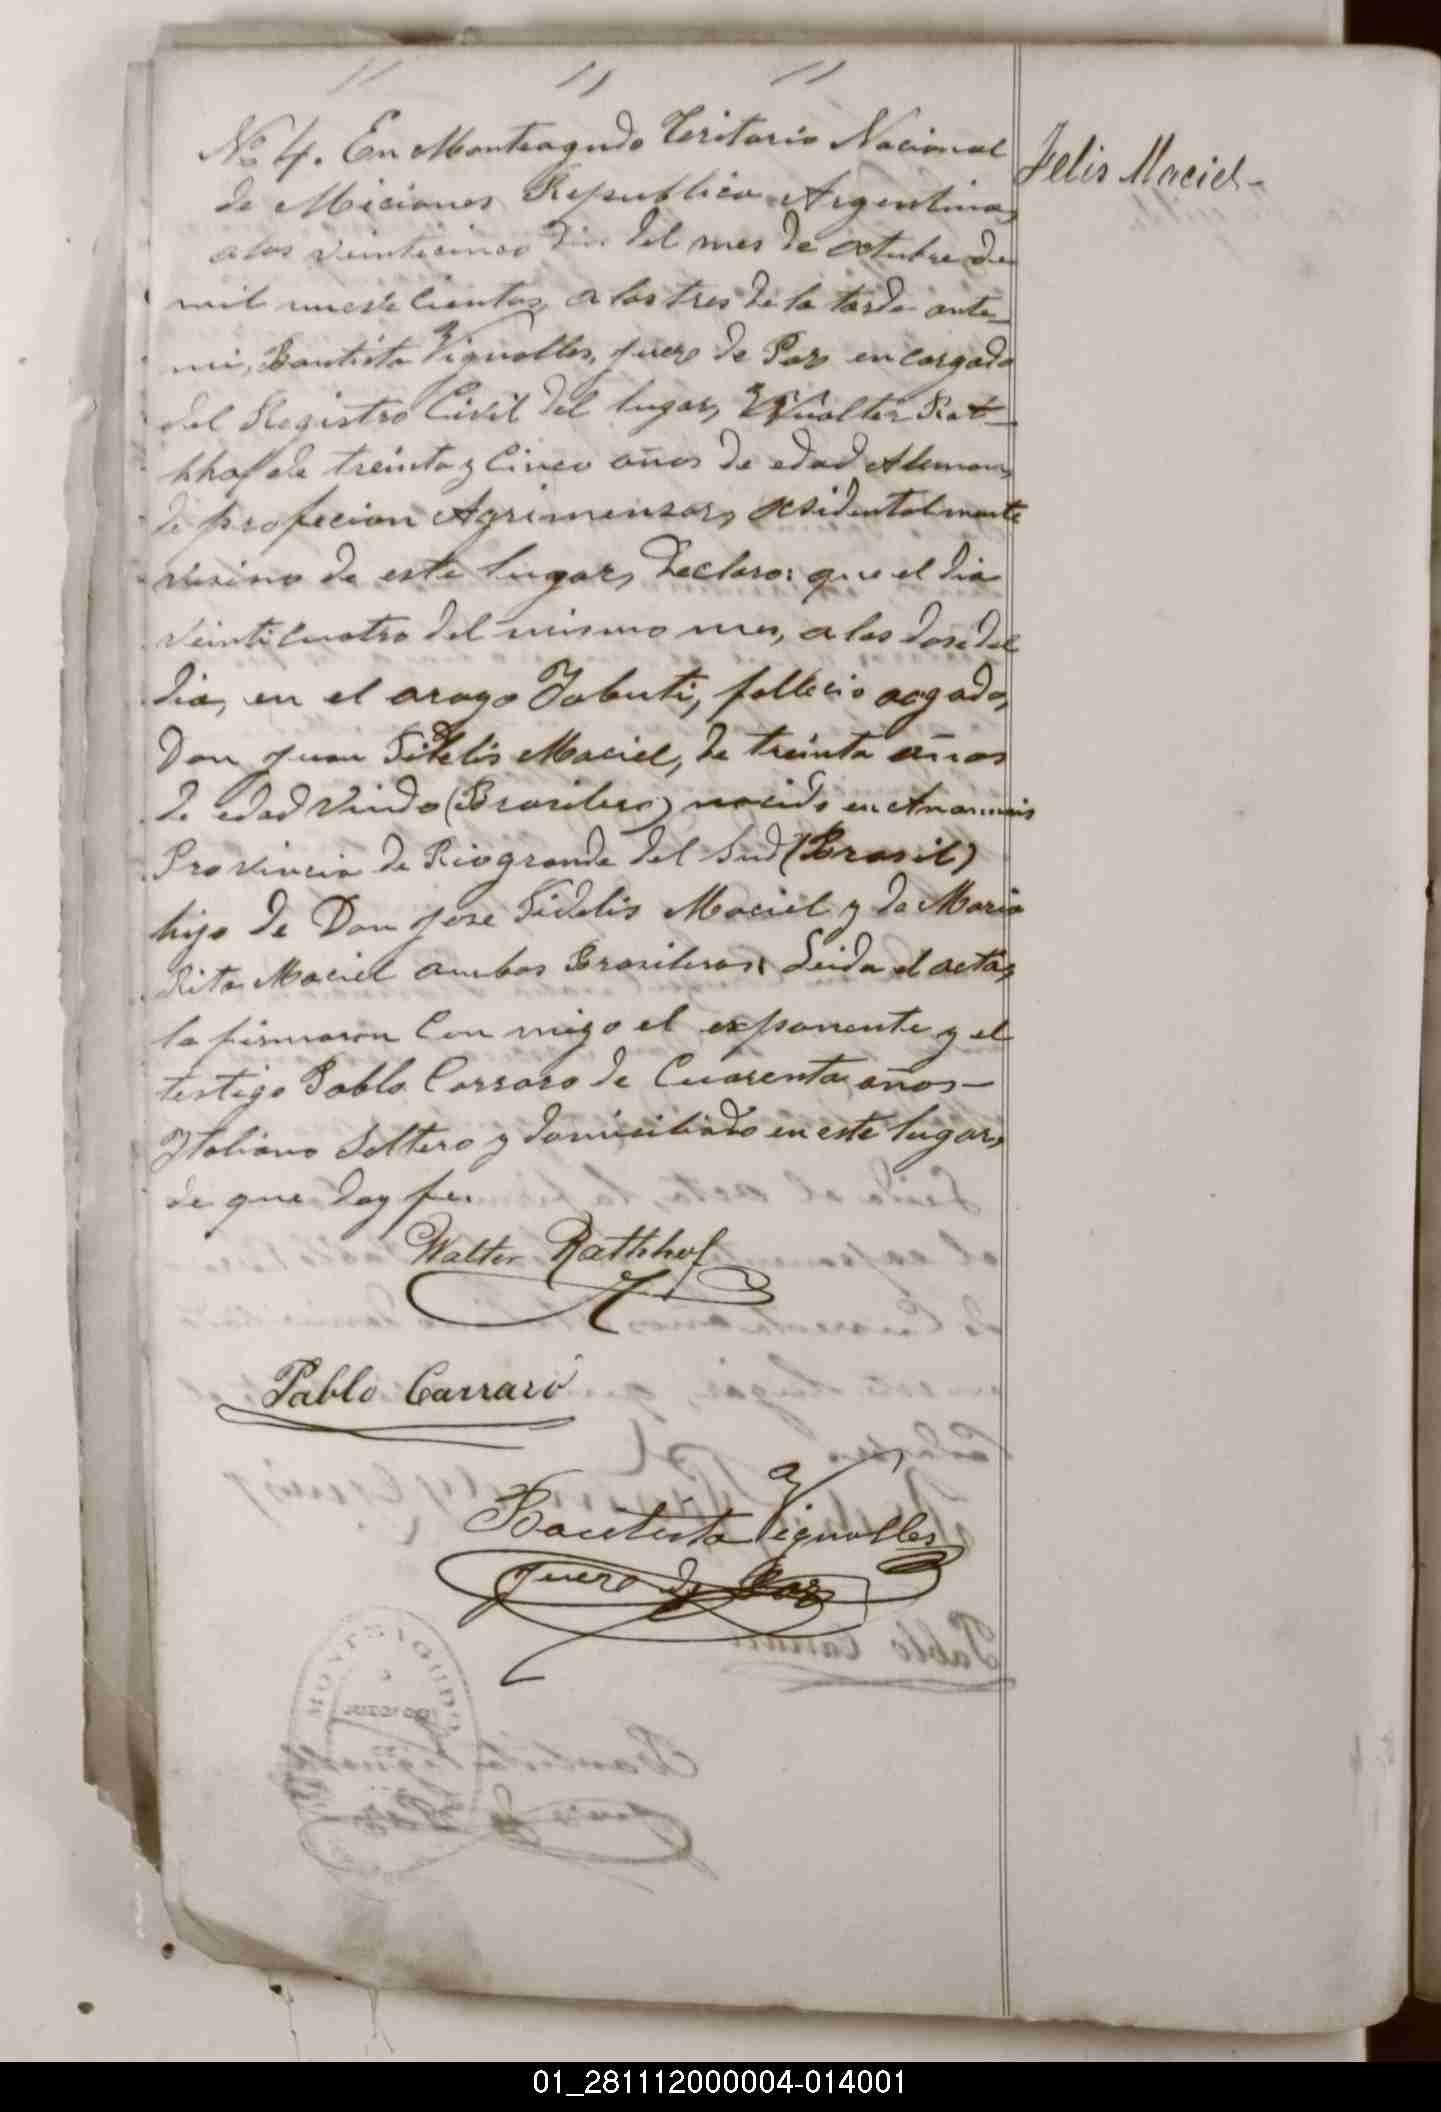 No 4. En Monteagudo Teritorio Nacional
Felis Maciel-
de Miciones Republica Argentina,
a los veinticinco dias del mes de octubre de
mil nuevecientos, a las tres de la tarde ante
mi, Bautista Vignolles, juez de Paz encargado
del Registro Civil del lugar, Walter Rat-
hhof de treinta y cinco años de edad Aleman,
de profecion Agrimensor, acsidentalmente
vesino de este lugar, Declaro: que el dia
veinticuatro del mismo mes, a las dose del
dia, en el aroyo Yabuti, fallecio aogado,
Don Juan Fidelis Maciel, de treinta años
de edad Viudo (Brasilero) nacido en
Provincia de Riogrande del Sud (Brasil)
hijo de Don Jose Fidelis Maciel y de Maria
Rita Maciel ambos Brasileros. Leida el acta,
la firmaron con migo el exponente y el
testigo Pablo Carraro de Cuarenta años-
Italiano Soltero y domiciliado en este lugar,
de que doy fe.
Walter Rathhof
Pablo Carraro
Bautista Vignolles
Juez de Paz
MONTEAGUDO
01_281112000004-014001